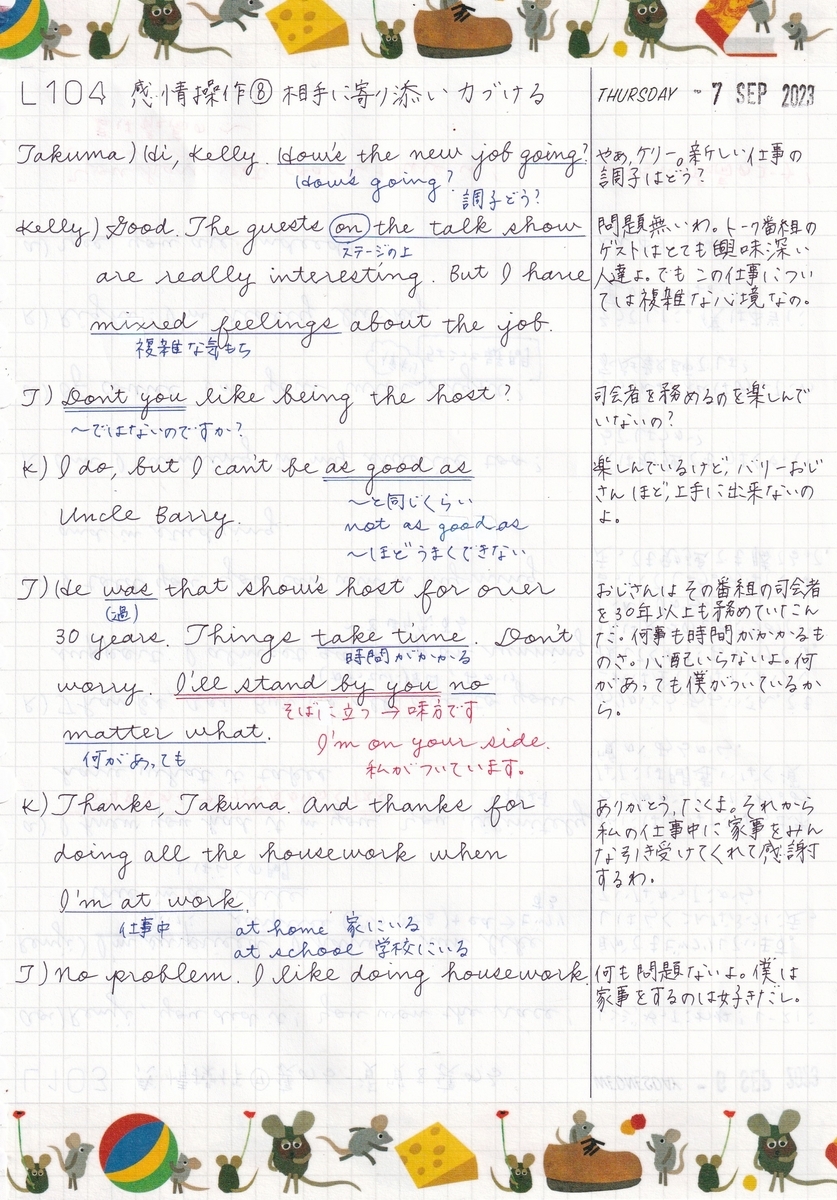 L104 感情操作⑧ 相手に寄り添い力づける
THURSDAY - 7 SEP 2023
Takuma) Hi, Kelly. How's the new job going?
How's going?
調子どう?
やあ、ケリー。新しい仕事の
調子はどう?
Kelly) Good. The guests on the talk show
ステージの上
are really interesting. But I have
mixed feelings about the job.
複雑な気もち
問題無いわ。トーク番組の
ゲストはとても興味深い
人達よ。でもこの仕事につい
ては複雑な心境なの。
T) Don't you like being the host?
〜ではないのですか?
司会者を務めるのを楽しんで
いないの?
K) I do, but I can't be as good as
Uncle Barry.
〜と同じくらい
not as good as
〜ほどうまくできない
楽しんでいるけど、バリーおじ
さんほど、上手に出来ないの
よ。
T) He was that show's host for over
(過)
30 years. Things take time. Don't
時間がかかる
worry. I'll stand by you no
そばに立つ → 味方です
matter what.
何があっても
I'm on your side.
私がついています。
おじさんはその番組の司会者
を30年以上も務めていたこん
だ。何事も時間がかかるも
のさ。心配いらないよ。何
があっても僕がついているか
ら。
K) Thanks, Takuma. And thanks for
doing all the housework when
I'm at work.
仕事中
at home 家にいる
at school 学校にいる
ありがとう、たくま。それから
私の仕事中に家事をみん
な引き受けてくれて感謝
するわ。
T) No problem. I like doing housework.
何も問題ないよ。僕は
家事をするのは好きだし。